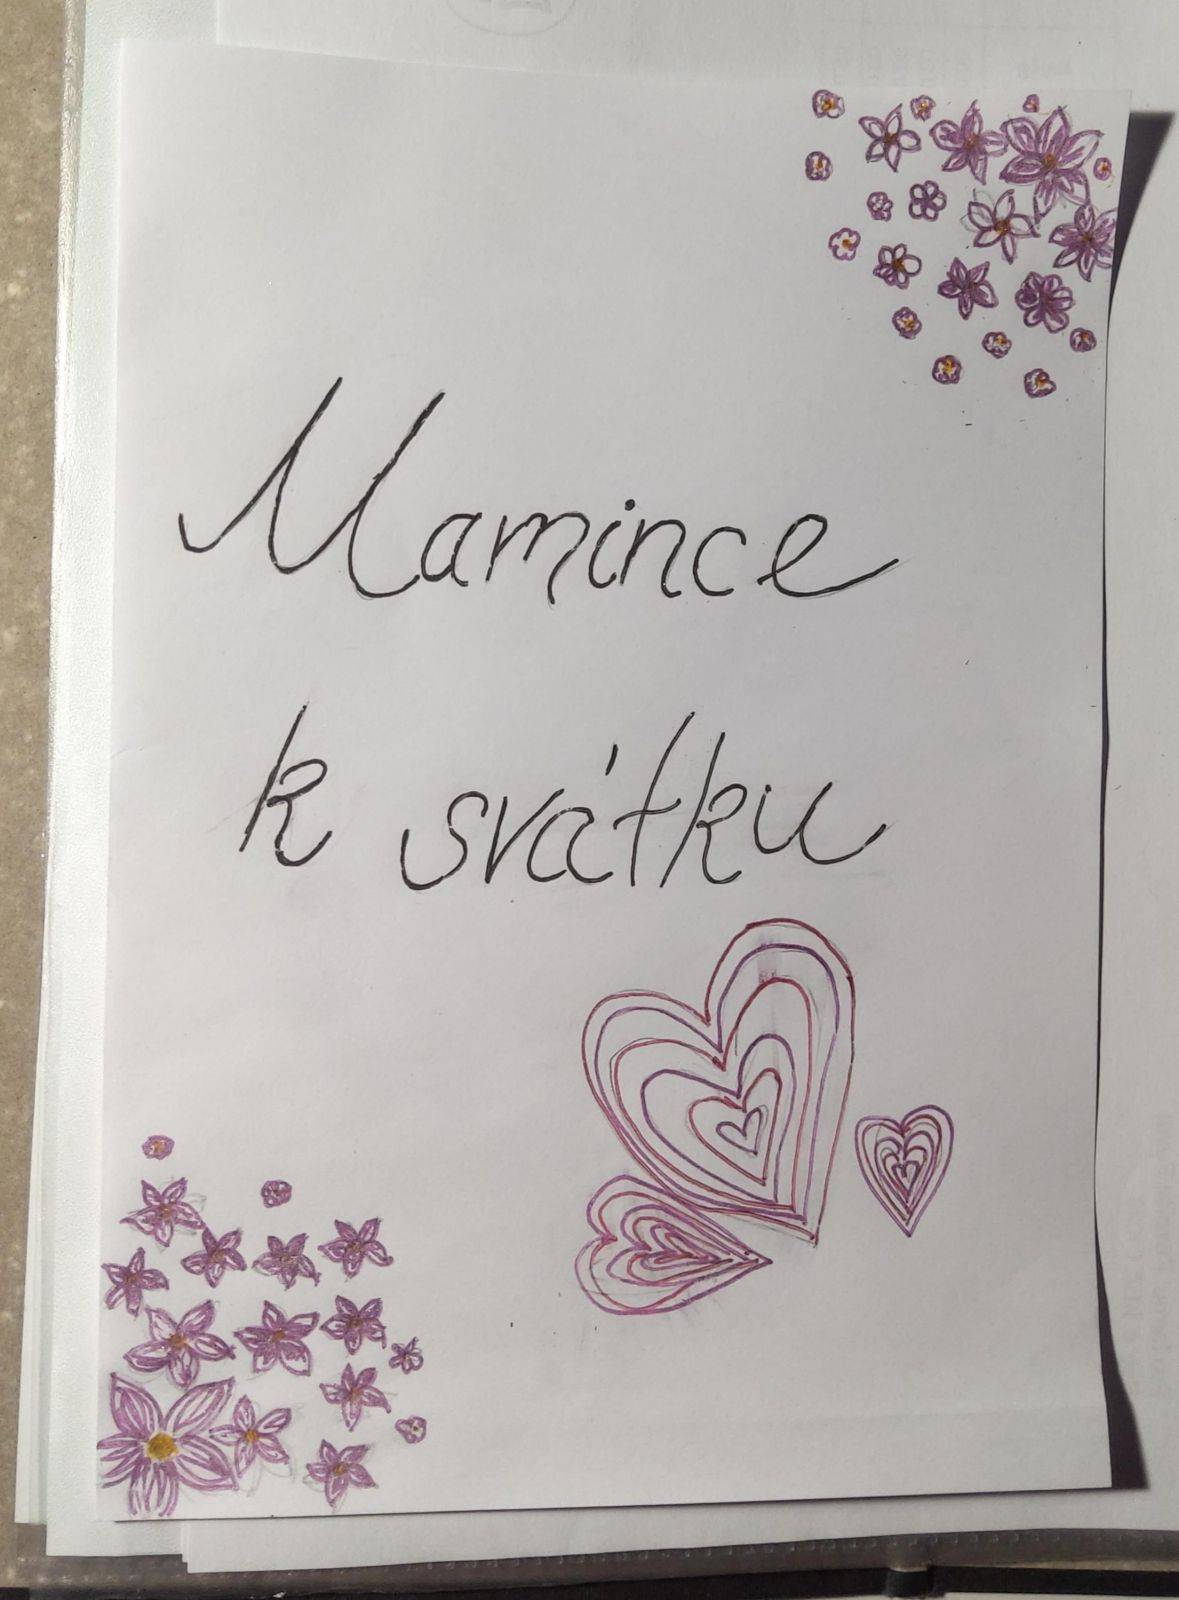 Mamince
k svátku